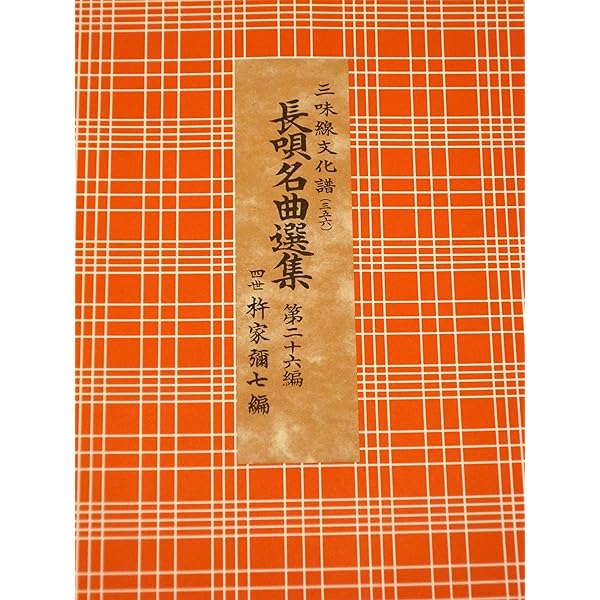 三味線文化譜（三五六）
長唄名曲選集 第二十六編
四世 杵家彌七編